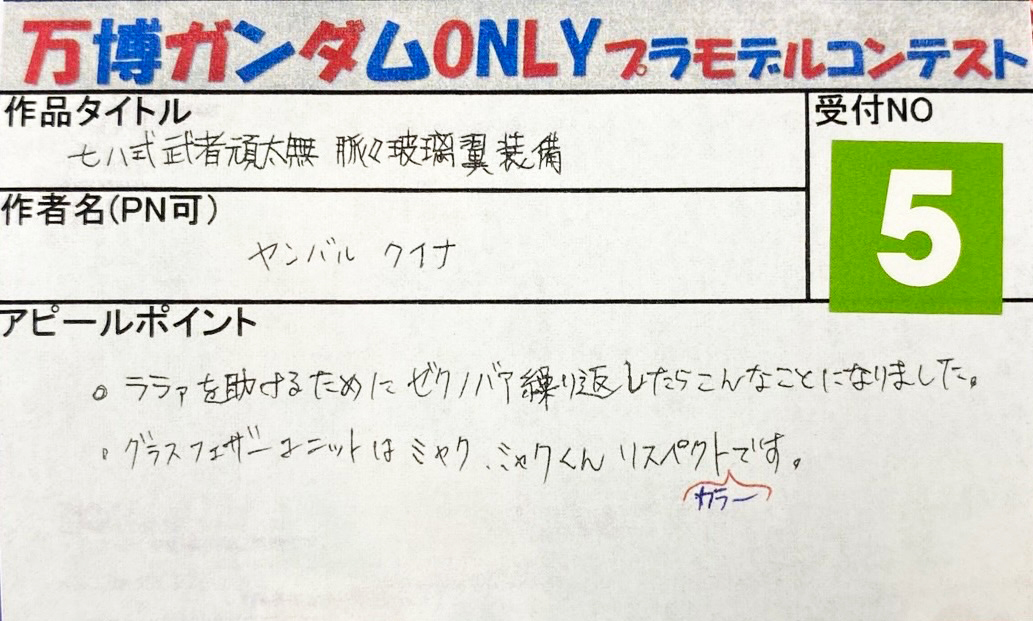 万博ガンダムONLYプラモデルコンテスト
作品タイトル
七八式武者頑太無 脈々玻璃翼装備
受付NO
5
作者名(PN可)
ヤンバル クイナ
アピールポイント
○ ララァを助けるためにゼクノバァ繰り返したらこんなことになりました。
・グラスフェザーユニットはミャク、ミャクくんリスペクトです。
カラー